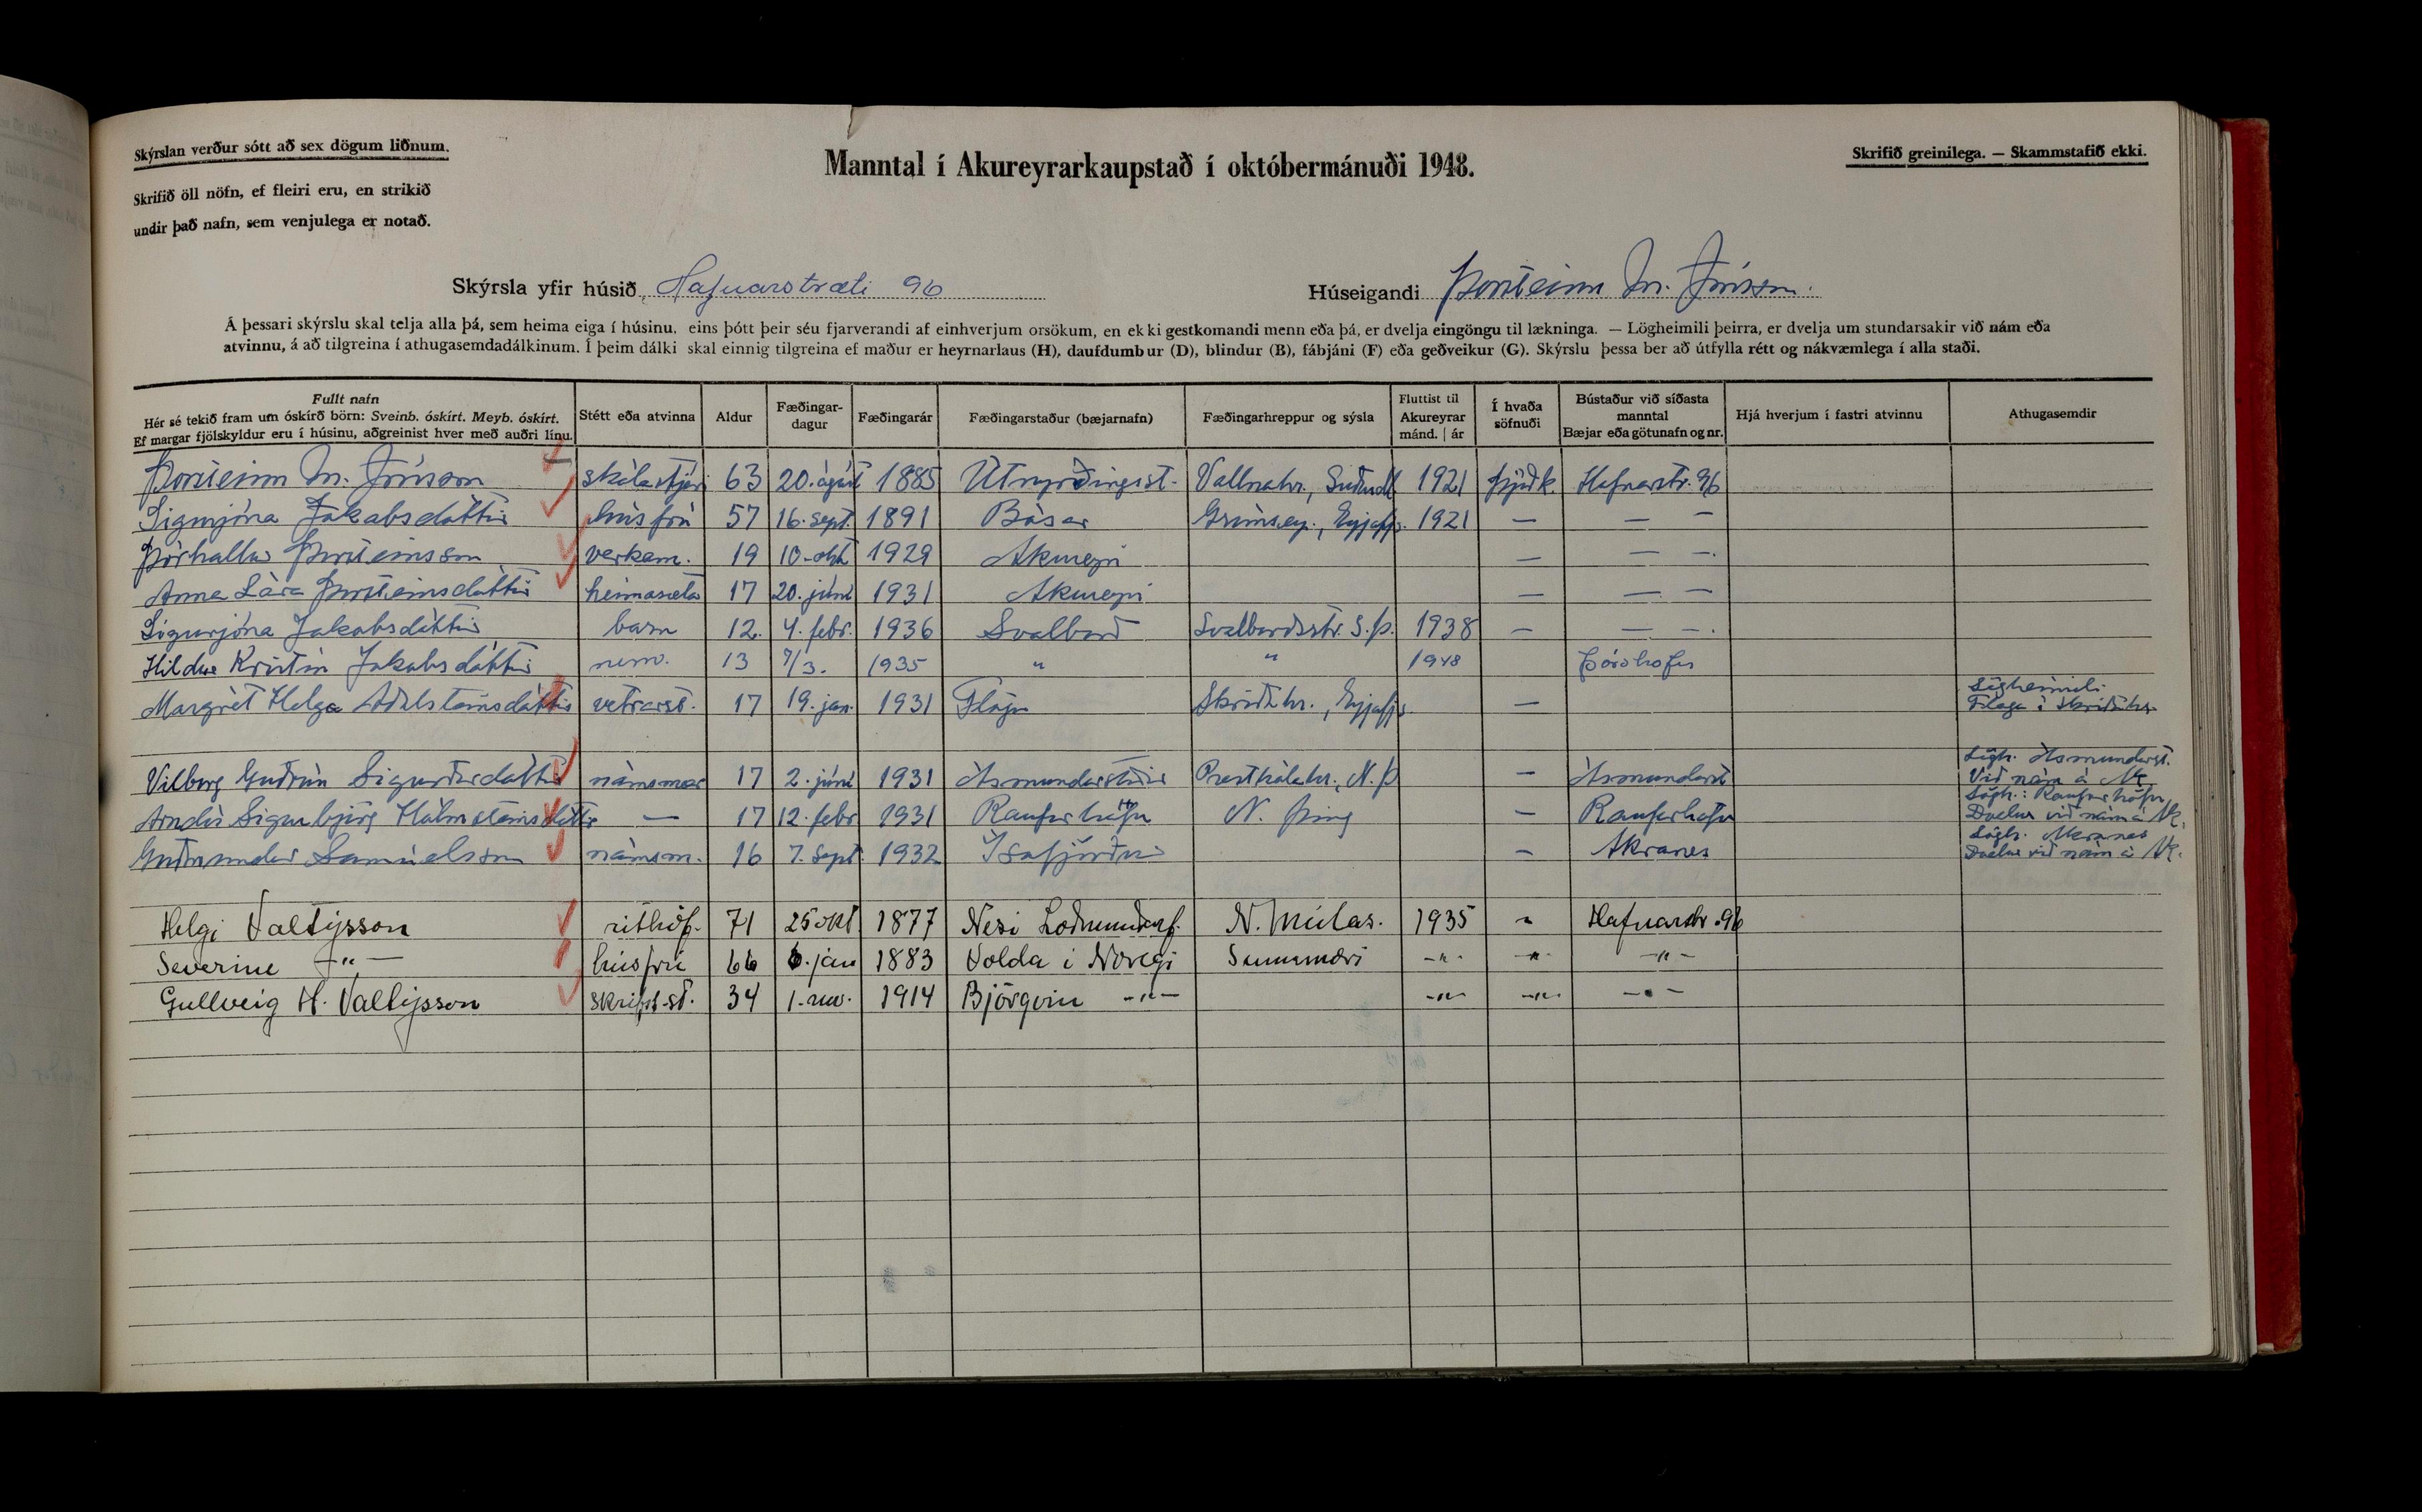 Skýrslan verður sótt að sex dögum liðnum.
Skrifið öll nöfn, ef fleiri eru, en strikið
undir það nafn, sem venjulega er notað.
Manntal í Akureyrarkaupstað í októbermánuði 1948.
Skrifið greinilega. — Skammstafið ekki.
Skýrsla yfir húsið Hafnarstræti 96
Húseigandi Þorsteinn M. Jónsson.
Á þessari skýrslu skal telja alla þá, sem heima eiga í húsinu, eins þótt þeir séu fjarverandi af einhverjum orsökum, en ekki gestkomandi menn eða þá, er dvelja eingöngu til lækninga. — Lögheimili þeirra, er dvelja um stundarsakir við nám eða
atvinnu, á að tilgreina í athugasemdadálkinum. Í þeim dálki skal einnig tilgreina ef maður er heyrnarlaus (H), daufdumbur (D), blindur (B), fábjáni (F) eða geðveikur (G). Skýrslu þessa ber að útfylla rétt og nákvæmlega í alla staði.
Fullt nafn
Hér sé tekið fram um óskírð börn: Sveinb. óskírt. Meyb. óskírt.
Ef margar fjölskyldur eru í húsinu, aðgreinist hver með auðri línu.
Stétt eða atvinna
Aldur
Fæðingar-
dagur
Fæðingarár
Fæðingarstaður (bæjarnafn)
Fæðingarhreppur og sýsla
Fluttist til
Akureyrar
mánd. | ár
Í hvaða
söfnuði
Bústaður við síðasta
manntal
Bæjar eða götunafn og nr.
Hjá hverjum í fastri atvinnu
Athugasemdir
Þorsteinn M. Jónsson skólastjóri 63 20. ágúst 1885 Útnyrðingsst. Vallnahr., Suðurm. 1921 þjóðk. Hafnarstr. 96
Sigurjóna Jakobsdóttir húsfrú 57 16. sept. 1891 Básar Grímsey, Eyjafjs. 1921 — — —
Þórhallur Þorsteinsson verkam. 19 10. okt. 1929 Akureyri — — —
Anna Lára Þorsteinsdóttir heimasæta 17 20. júní 1931 Akureyri — — —
Sigurjóna Jakobsdóttir barn 12. 4. febr. 1936 Svalbarð Svalbarðsstr. S.Þ. 1938 — — —
Hildur Kristín Jakobsdóttir nem. 13 7/3. 1935 " " 1948 Þórshöfn
Margrét Helga Aðalsteinsdóttir vetrarst. 17 19. jan. 1931 Flaga Skriðuhr., Eyjafjs. — Lögheimili:
Flaga í Skriðuhr.
Vilborg Guðrún Sigurðardóttir námsmær 17 2. júní 1931 Ásmundarstaðir Presthólahr., N.Þ. — Ásmundarst. Lögh. Ásmundarst.
Við nám á Ak.
Arndís Sigurbjörg Hólmsteinsdóttir — 17 12. febr 1931 Raufarhöfn N. Þing — Raufarhöfn Lögh.: Raufarhöfn
Dvelur við nám á Ak.
Guðmundur Samúelsson námsm. 16 7. sept. 1932 Ísafjörður — Akranes Lögh. Akranes
Dvelur við nám á Ak.
Helgi Valtýsson rithöf. 71 25 okt 1877 Nesi Loðmundarf. N. Múlas. 1935 " Hafnarstr. 96
Severine —"— húsfrú 66 6. jan 1883 Volda í Noregi Sunnmæri —"— —"— —"—
Gullveig H. Valtýsson skrifst.st. 34 1. nóv. 1914 Björgvin —"— —"— —"— —"—